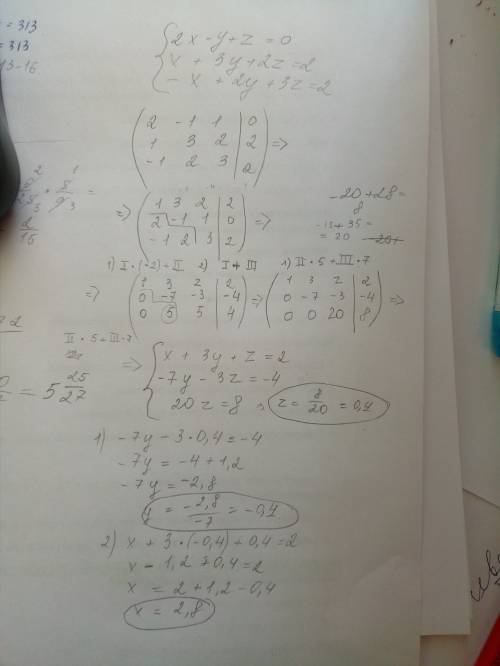 = 313
= 313
13-16
2x - y + z = 0
x + 3y + 2z = 2
- x + 2y + 3z = 2
2 -1 1 | 0
1 3 2 | 2 =>
-1 2 3 | 2
=> 1 3 2 | 2
2 -1 1 | 0 =>
-1 2 3 | 2
-20 + 28 =
8
-15 + 35 =
= 20
1) I · (-2) + II 2) I + III 1) II · 5 + III · 7
=> 1 3 2 | 2 => 1 3 2 | 2
0 -7 -3 | -4 0 -7 -3 | -4 =>
0 5 5 | 4 0 0 20 | 8
II · 5 + III · 7
= 5 25/27
=> x + 3y + z = 2
-7y - 3z = -4
20z = 8 z = 8/20 = 0,4
1) -7y - 3 · 0,4 = -4
-7y = -4 + 1,2
-7y = -2,8
y = -2,8/-7 = -0,4
2) x + 3 · (-0,4) + 0,4 = 2
x - 1,2 + 0,4 = 2
x = 2 + 1,2 - 0,4
x = 2,8